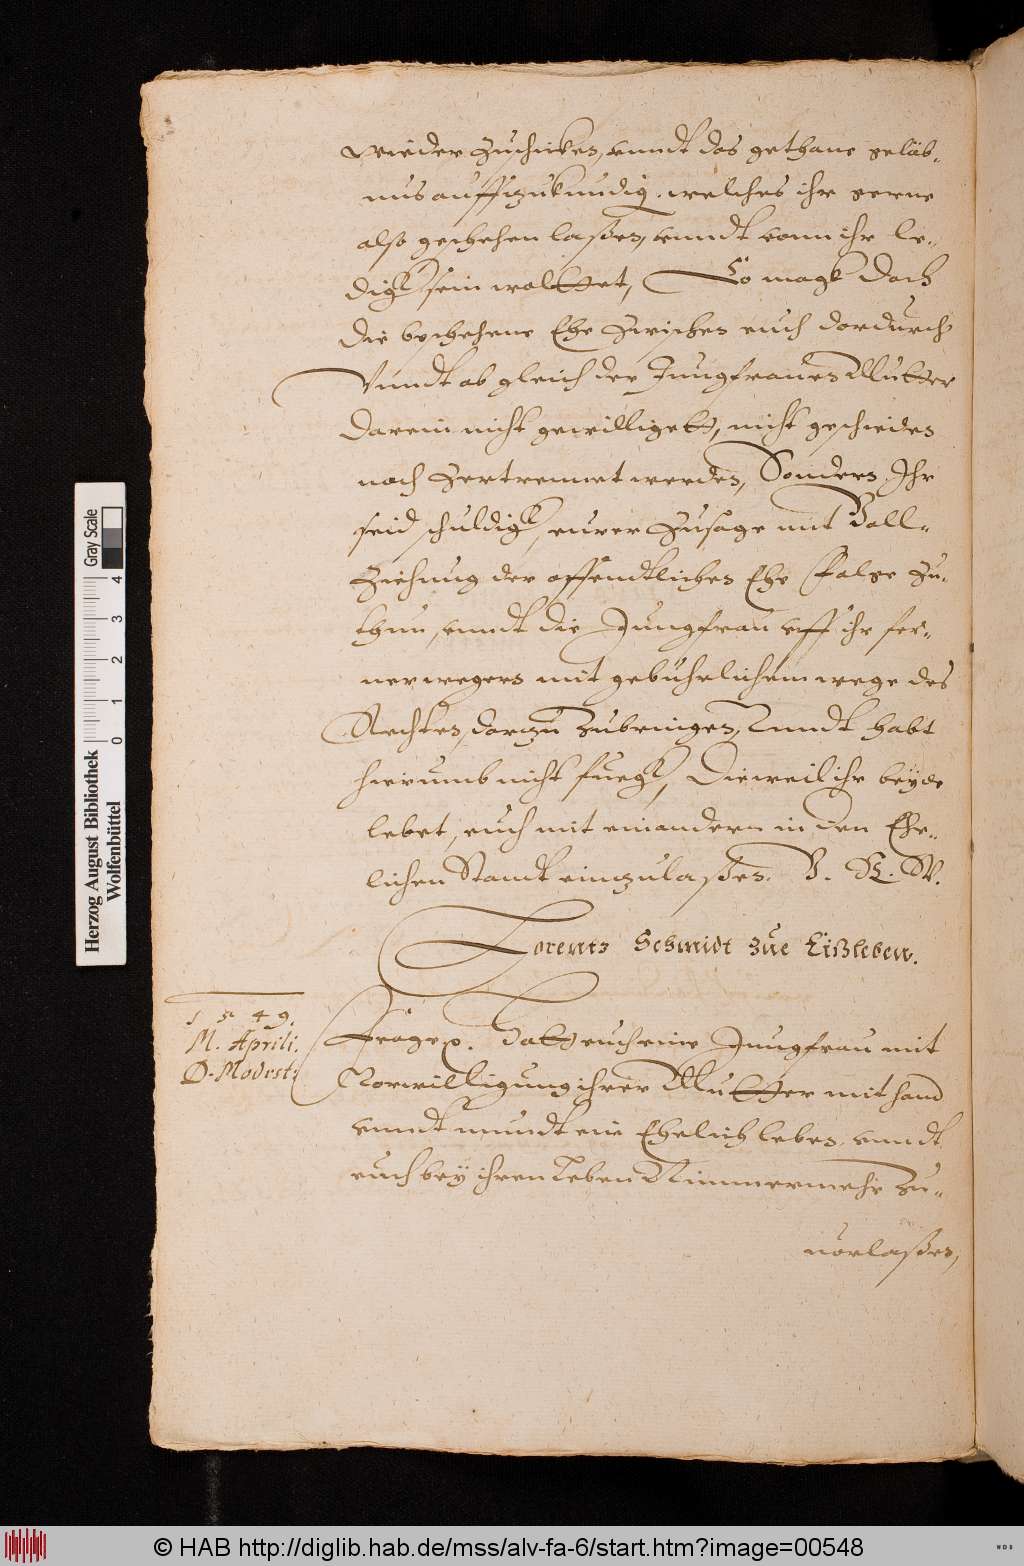 wieder zuschicken, vnndt das gethane gelüb-
nus auffzukundig. welches ihr gerne
also geschehen laßen, vnndt vonn ihr le-
digk sein woltet, So magk doch
die beschehene Ehe zwischen euch dardurch
Vnndt ob gleich der Jungfrauen Mutter
darein nicht gewilligett, nicht gescheiden
noch zertrennet werden, Sondern Ihr
seid schuldigk, eurer Zusage mit Voll-
ziehung der offentlichen Ehe folge zu-
thun, vnndt die Jungfrau vff ihr fer-
ner wegern mit gebührlichem wege des
Rechten, darzu zubringen, Vnndt habt
hierumb nicht fuegk, Dieweil ihr beyde
lebet, euch mit einandern in den Ehe-
lichen Standt einzulaßen. V. R. W.
Lorentz Schmidt zue Eißleben.
1549.
M. Aprili.
D. Modesti
Frage. Hatt euch eine Jungfrau mit
Vorwilligung ihrer Mutter mit hand
vnndt mundt ein Ehelich leben, vnndt
euch bey ihren Leben Nimmermehr zu-
uorlaßen,
Herzog August Bibliothek
Wolfenbüttel
0 1 2 3 4
Gray Scale
© HAB http://diglib.hab.de/mss/alv-fa-6/start.htm?image=00548
WDB